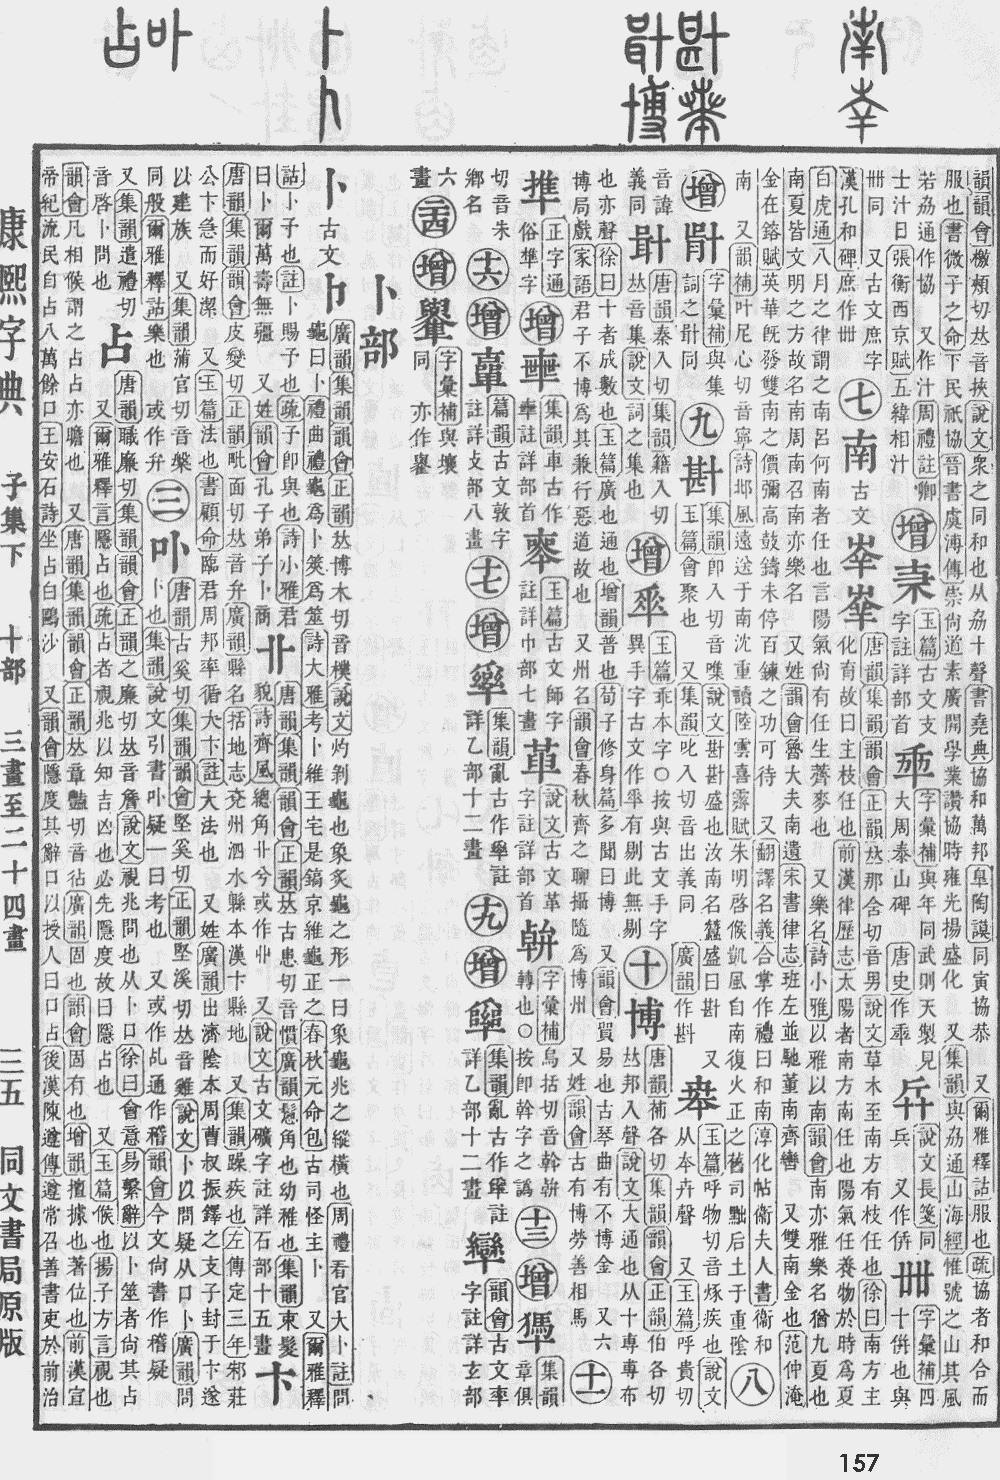 韻韻會檄頰切𠀤音挾說文衆之同和也从劦十聲書堯典協和萬邦皐陶謨同寅協恭 又爾雅釋詁服也疏協者和合而
服也書微子之命下民祇協晉書虞溥傳崇尚道素廣開學業讚協時雍光揚盛化 又集韻與劦通山海經惟號之山其風
若劦通作協 又作汁周禮註卿
士汁日張衡西京賦五緯相汁
增
玉篇古文支
字註詳部首
字彙補與年同武則天製見
大周泰山碑 唐史作𠦚
說文長箋同
兵 又作㑂
卌
字彙補四
十倂也與
卌同 又古文庶字
漢孔和碑庶作卌
七南古文
唐韻集韻韻會正韻𠀤那含切音男說文草木至南方有枝任也徐曰南方主
化育故曰主枝任也前漢律歷志太陽者南方南任也陽氣任養物於時爲夏
白虎通八月之律謂之南呂何南者任也言陽氣尚有任生薺麥也 又樂名詩小雅以雅以南韻會南亦雅樂名猶九夏也
南夏皆文明之方故名南周南召南亦樂名 又姓韻會魯大夫南遺宋書律志班左並馳董南齊轡 又雙南金也范仲淹
金在鎔賦英華旣發雙南之價彌高鼓鑄未停百鍊之功可待 又翻譯名義合掌作禮曰和南淳化帖衞夫人書衞和
南 又韻補叶尼心切音寧詩邶風遠送于南沈重讀陸雲喜霽賦朱明啓候凱風自南復火正之舊司黜后土于重陰
八
增
字彙補與集
詞之卙同
九卙
集韻卽入切音喞說文卙卙盛也汝南名蠶盛曰卙 又
玉篇會聚也 又集韻叱入切音出義同
廣韻作斟
玉篇呼物切音烼疾也說文
从夲卉聲 又玉篇呼貴切
音諱
義同
唐韻秦入切集韻籍入切
𠀤音集說文詞之集也
增
玉篇乖本字○按與古文手字
異手字古文作𠂿有剔此無剔
十博
唐韻補各切集韻韻會正韻伯各切
𠀤邦入聲說文大通也从十尃尃布
也亦聲徐曰十者成數也玉篇廣也通也增韻普也荀子修身篇多聞曰博 又韻會貿易也古琴曲有不博金 六
博局戲家語君子不博爲其兼行惡道故也 又州名韻會春秋齊之聊攝隨爲博州 又姓韻會古有博勞善相馬
十一
正字通
俗凖字
增
集韻車古作
註詳部首
玉篇古文師字
註詳巾部七畫
革
說文古文革
字註詳部首
字彙補烏括切音斡斡
轉也○按卽斡字之譌
十三增
集韻
章俱
切音朱
鄉名
十六增
篇韻古文敦字
註詳攴部八畫
十七增
集韻亂古作𠦸註
詳乙部十二畫
十九增
集韻亂古作𠦹註
詳乙部十二畫
韻會古文率
字註詳玄部
六
畫
二十四增
字彙補與壤
同 亦作𠦼
卜部
卜古文
廣韻集韻韻會正韻𠀤博木切音樸說文灼剝龜也象炙龜之形一曰象龜兆之縱橫也周禮春官大卜註問
龜曰卜禮曲禮龜爲卜筴爲筮詩大雅考卜維王宅是鎬京維龜正之春秋元命包古司怪主卜 又爾雅釋
詁卜子也註卜賜予也疏子卽與也詩小雅君
曰卜爾萬壽無疆 又姓韻會孔子弟子卜商
唐韻集韻韻會正韻𠀤古患切音慣廣韻鬄角也幼稚也集韻束髮
貌詩齊風總角丱兮或作卝 又說文古文礦字註詳石部十五畫
卞
唐韻集韻韻會皮變切正韻毗面切𠀤音弁廣韻縣名括地志兗州泗水縣本漢卞縣地 又集韻躁疾也左傳定三年邾莊
公卞急而好潔 又玉篇法也書顧命臨君周邦率循大卞註大法也 又姓廣韻出濟陰本周曹叔振鐸之支子封于卞遂
以建族 又集韻蒲官切音槃
同般爾雅釋詁樂也 或作弁
三卟
唐韻古奚切集韻韻會堅奚切正韻堅溪切𠀤音雞說文卜以問疑从口卜廣韻問
卜也集韻說文引書卟疑一曰考也 又或作乩通作稽韻會今文尙書作稽疑
又集韻遣禮切
音啓卜問也
占
唐韻職廉切集韻韻會正韻之廉切𠀤音詹說文視兆問也从卜口徐曰會意易繫辭以卜筮者尙其占
又爾雅釋言隱占也疏占者視兆以知吉凶也必先隱度故曰隱占也 又玉篇候也揚子方言視也
韻會凡相候謂之占占亦瞻也 又唐韻集韻韻會正韻𠀤章豔切音㤐廣韻固也韻會固有也增韻擅據也著位也前漢宣
帝紀流民自占八萬餘口王安石詩坐占白鷗沙 又韻會隱度其辭口以授人曰口占後漢陳遵傳遵常召善書吏於前治
康熙字典 子集下 十部 三畫至二十四畫 三五 同文書局原版
157